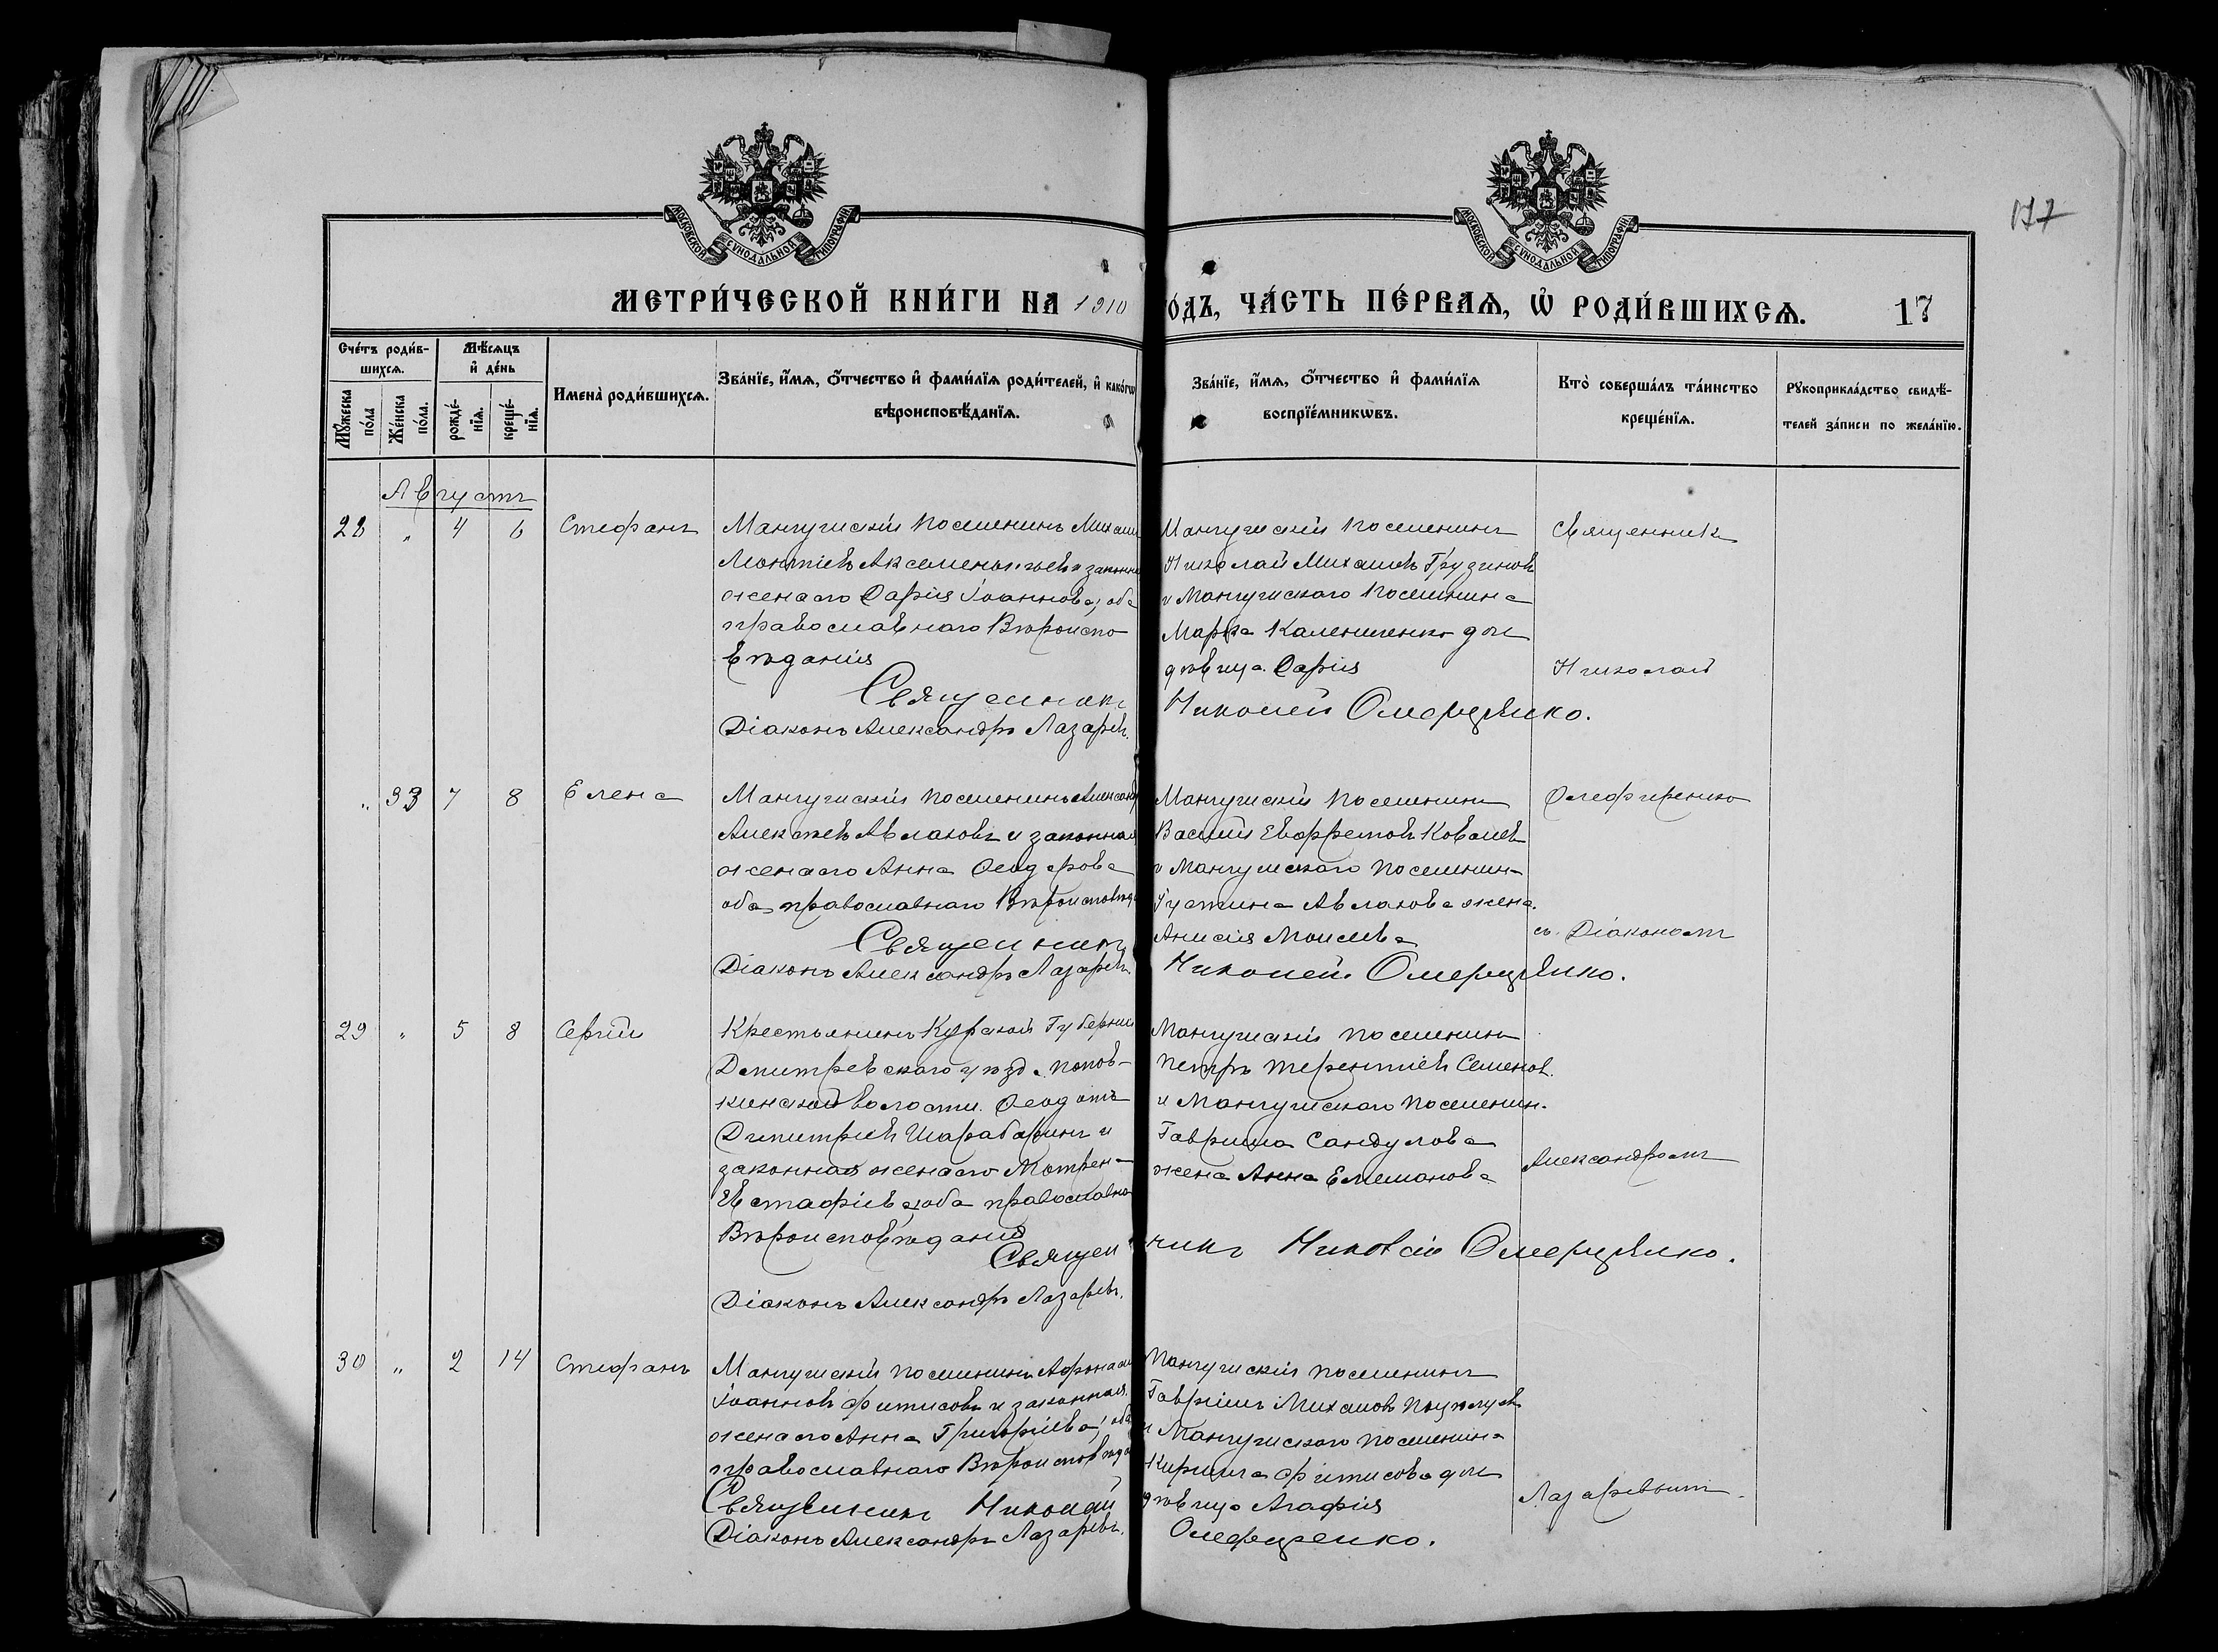 МОСКОВСКОЙ СУНОДАЛЬНОЙ ТИПОГРАФІИ
МОСКОВСКОЙ СУНОДАЛЬНОЙ ТИПОГРАФІИ
МЕТРИ́ЧЕСКОЙ КНИ́ГИ НА 1910
ГО́ДЪ, ЧА́СТЬ ПЕ́РВАѦ, Ѡ҆ РОДИ́ВШИХСѦ. 17
Сче́тъ роди́в-
шихсѧ.
Мꙋ́жеска по́ла
Же́нска по́ла.
Мѣ́сѧцъ и҆ де́нь
рожде́-нїѧ.
креще́-нїѧ.
Имена̀ роди́вшихсѧ.
Зва́нїе, и҆́мѧ, ѻ҆́тчество и҆ фами́лїѧ роди́телей, и҆ како́гѡ
вѣроисповѣ́данїѧ.
Зва́нїе, и҆́мѧ, ѻ҆́тчество и҆ фами́лїѧ
воспрїе́мникѡвъ.
Кто̀ соверша́лъ та́инство
креще́нїѧ.
Рꙋкоприкла́дство свидѣ́-
телей за́писи по жела́нїю.
Августъ
28 " 4 6 Стефанъ
Мангушскій поселенинъ Михаил
Леонтіевъ и законн
жена его Дарія Іоаннова, оба
православнаго Вѣроиспо
вѣданія
Священникъ
Діаконъ Александръ Лазаревъ.
Мангушскій поселенинъ
Николай Михаиловъ Грузиновъ
и Мангушскаго поселенина
Марка дочь
дѣвица Дарія
Николай Олефиренко.
Священник
Николай
" 33 7 8 Елена
Мангушскій поселенинъ Александр
Алексѣевъ Авласовъ и законная
жена его Анна Ѳеодорова
оба православнаго Вѣроисповѣд
Священникъ
Діаконъ Александръ Лазаревъ.
Мангушскій поселенинъ
Василій Ковалевъ
и Мангушскаго поселенина
Густина Авласова жена
Анисія Моисеева
Николай Олефиренко.
Олефиренко
съ Діакономъ
29 " 5 8 Сергій
Крестьянинъ Курской Губерніи
Дмитревскаго уѣзда Попов-
кинской волости Ѳеодотъ
Димитріевъ Шарабаринъ и
законная жена его Матрена
Евстафіева, оба православна
Вѣроисповѣданія
Священ
Діаконъ Александръ Лазаревъ.
Мангушскій поселенинъ
Петръ Терентіевъ Семенов.
и Мангушскаго поселенин.
Гавриила Сандулова
жена Анна
никъ Николай Олефиренко.
Александромъ
30 " 2 14 Стефанъ
Мангушскій поселенинъ Афонаси
Іоанновъ Фитисовъ и законная
жена его Анна Григоріева, оба
православнаго Вѣроисповѣда
Священникъ Николай
Діаконъ Александръ Лазаревъ.
Мангушскій поселенинъ
Гавріилъ Михаиловъ Поцѣлуев
и Мангушскаго поселенина
Кирилла Фитисова дочь
дѣвица Агафія
Олефиренко.
Лазаревымъ.